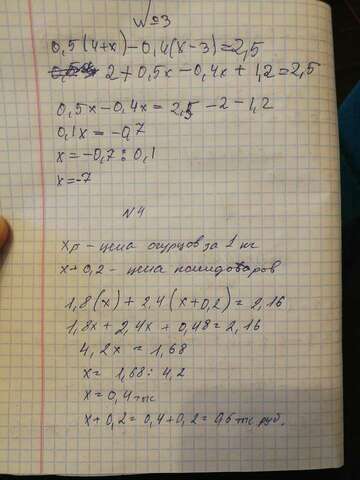 №3
0,5(4+x)-0,4(x-3)=2,5
2+0,5x-0,4x+1,2=2,5
0,5x-0,4x=2,5-2-1,2
0,1x=-0,7
x=-0,7:0,1
x=-7
N4
xр-цена огурцов за 1 кг
x+0,2-цена помидоваров
1,8(x)+2,4(x+0,2)=2,16
1,8x+2,4x+0,48=2,16
4,2x=1,68
x=1,68:4,2
x=0,4тыс
x+0,2=0,4+0,2=0,6тыс руб.